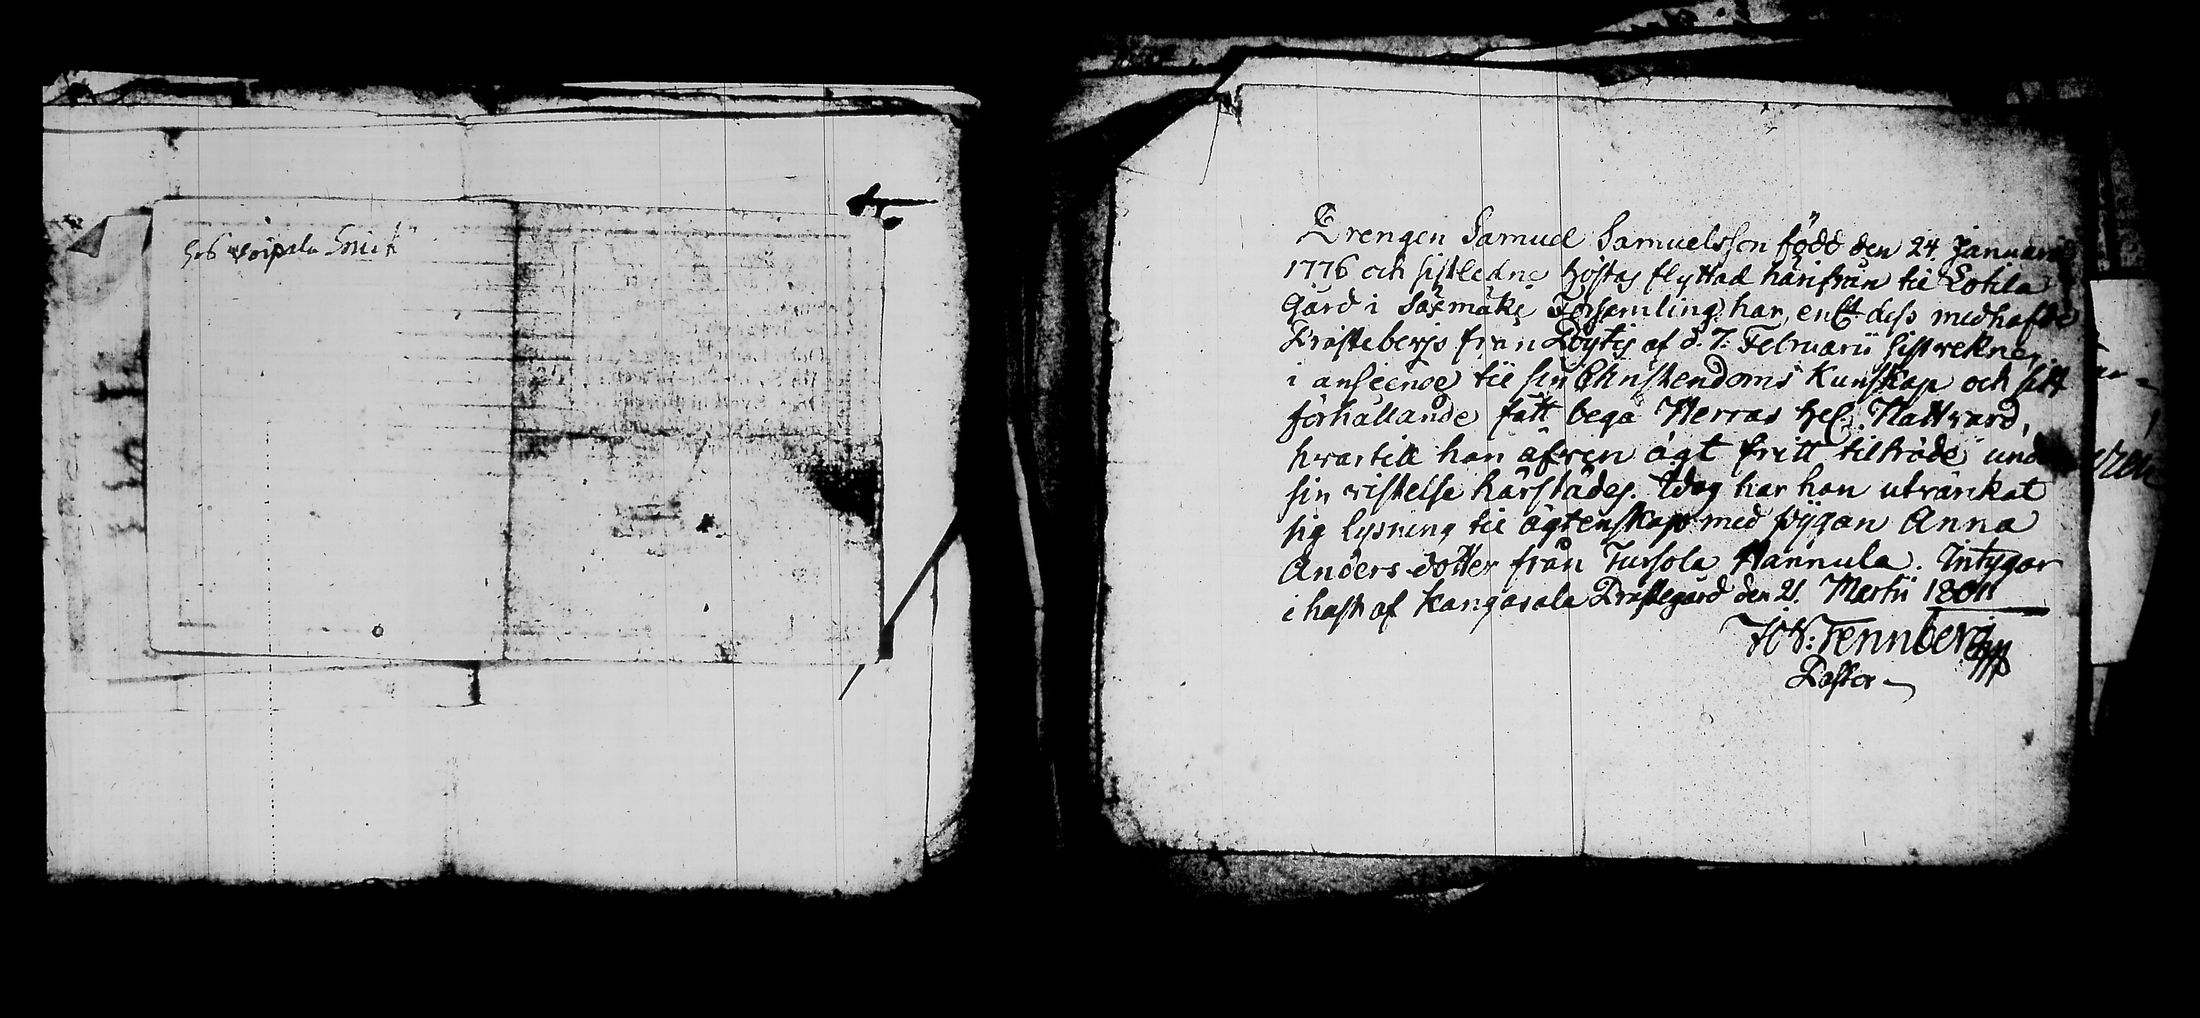 hos
Drengen Samuel Samuelsson född den 24. Januarii
1776 och sistledne höstas flyttad härifrån til Lotila
Gård i Sāxmāki Församling har, enl:t dess medhafde
Prästebevjs från Pöytis af d. 7. Februarii sistvekne,
i anseende til sin Christendoms Kunskap och sitt
förhållande fått begå Herras hel. Nattvard,
hvartill han äfven ägt fritt tilträde under
sin vistelse härstädes. Idag har han utvärckat
sig lysning til ägtenskap med pigan Anna
Anders dotter från Tursola Hannula. Intygar
i hast af Kangasala Prästegård den 21. Martii 1801
Tennberg
Pastor